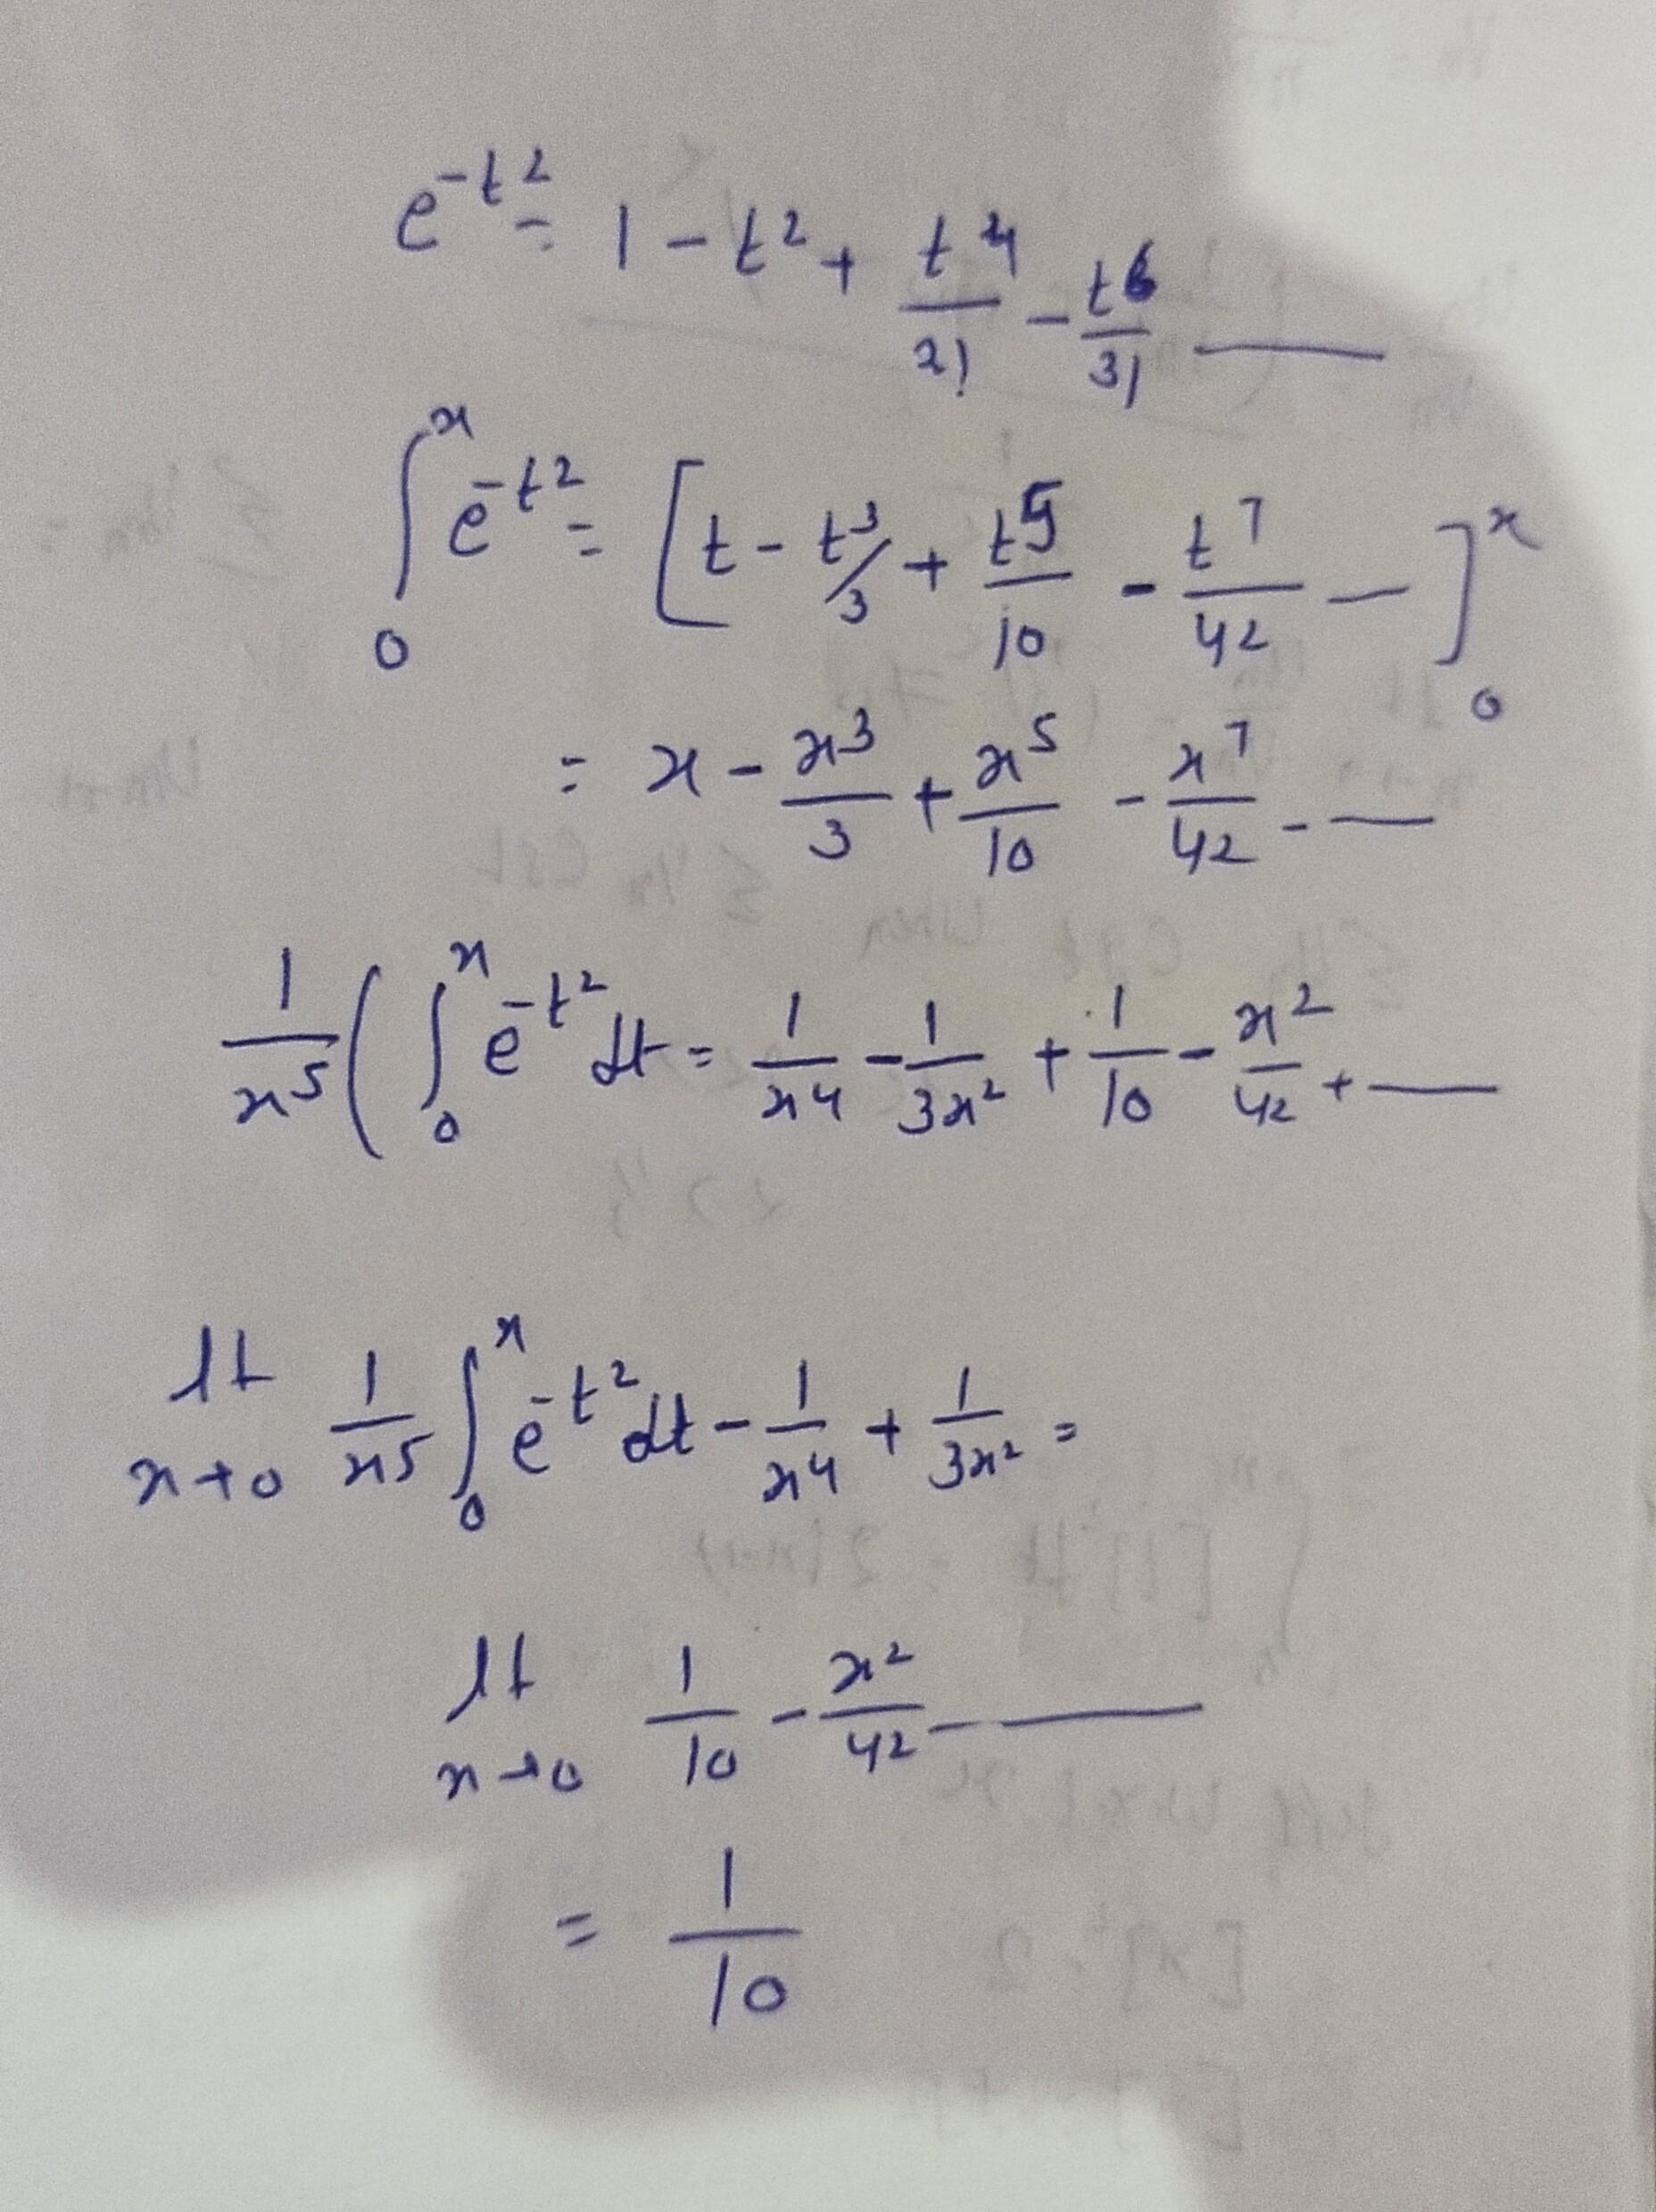 e^{-t^2} = 1 - t^2 + t^4/2! - t^6/3! ———
∫_0^x e^{-t^2} = [t - t^3/3 + t^5/10 - t^7/42 —]_0^x
= x - x^3/3 + x^5/10 - x^7/42 - —
1/x^5 ( ∫_0^x e^{-t^2} dt = 1/x^4 - 1/3x^2 + 1/10 - x^2/42 + ——
lt x→0 1/x^5 ∫_0^x e^{-t^2} dt - 1/x^4 + 1/3x^2 =
lt x→0 1/10 - x^2/42 - ———
= 1/10